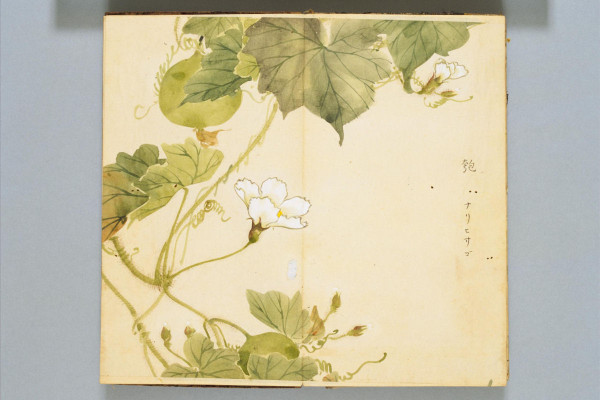 匏
ナリヒサゴ